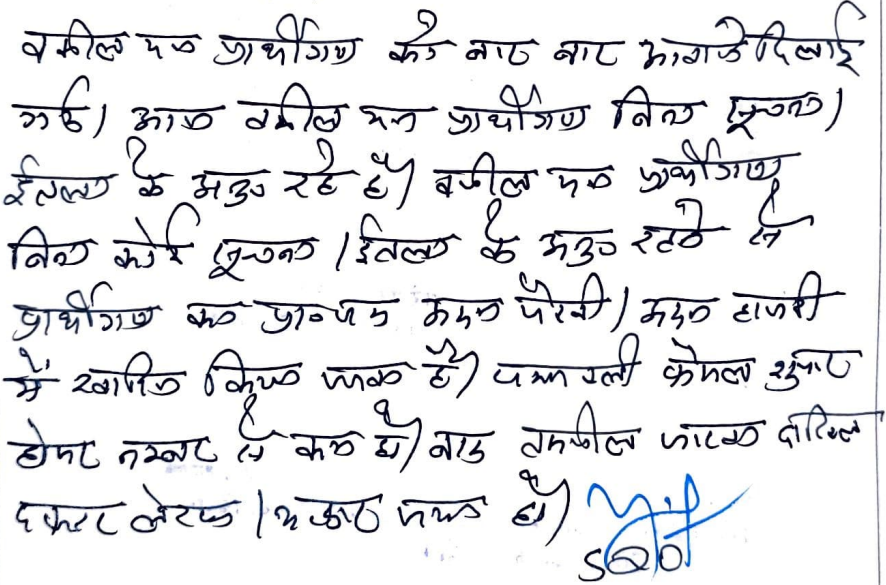 वकील मय प्रार्थीगण को बार बार आवाजे दिलाई
गई। आज वकील मय प्रार्थीगण बिना सूचना।
ईतला के अनु रहे है। वकील मय प्रार्थीगण
बिना कोई सूचना । ईतला के अनु रहने से
प्रार्थीगण का प्रा०पत्र अदम पैरवी। अदम हाजरी
में खारिज किया जाता है। पत्रावली फैसल शुमार
होकर नम्बर से कम हो। बाद तकमील जाब्ता दाखिल
दफ्तर
SDO